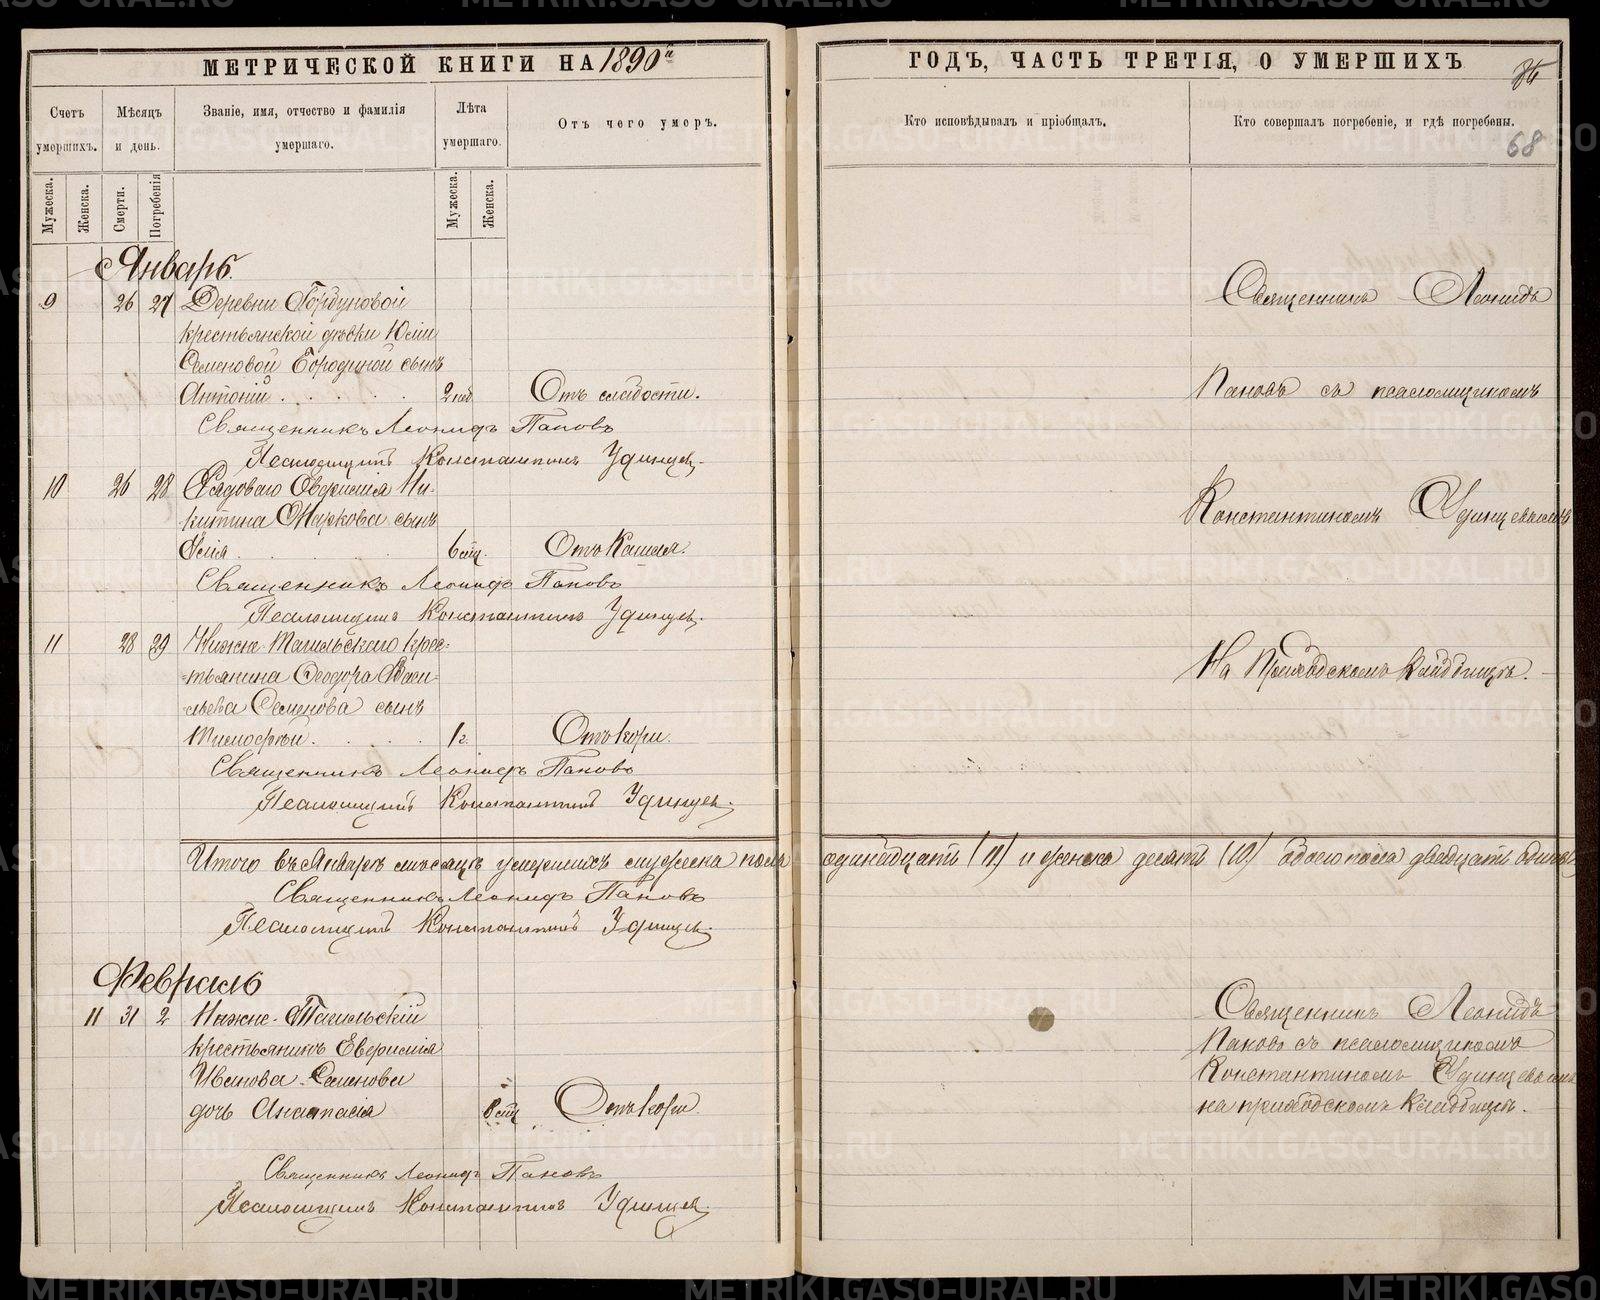 МЕТРИЧЕСКОЙ КНИГИ НА 1890й
ГОДЪ, ЧАСТЬ ТРЕТІЯ, О УМЕРШИХЪ
68
Счетъ умершихъ.
Мѣсяцъ и день.
Званіе, имя, отчество и фамилія умершаго.
Лѣта умершаго.
Отъ чего умеръ.
Кто исповѣдывалъ и пріобщалъ.
Кто совершалъ погребеніе, и гдѣ погребены.
Мужеска.
Женска.
Смерти.
Погребенія
Мужеска.
Женска.
Январь.
9 26 27 Деревни Горбуновой
крестьянской дѣвки Юліи
Семеновой Бородиной сынъ
Антоній 2 нед Отъ слабости.
Священникъ Леонидъ Паповъ
Псаломщикъ Константинъ Удинцев.
10 26 28 Рядоваго Ни-
китина Маркова сынъ
Илія 6 мц. Отъ Кашля.
Священникъ Леонидъ Паповъ
Псаломщикъ Константинъ Удинцев.
11 28 29 Нижне-Тагильскаго крес-
тьянина Ѳеодора Васи-
льева Семенова сынъ
Тимофей 1 г. Отъ кори.
Священникъ Леонидъ Паповъ
Псаломщикъ Константинъ Удинцев.
Священникъ Леонидъ
Паповъ съ псаломщикомъ
Константиномъ Удинцевымъ
На Приходскомъ Кладбищѣ.
Итого въ Январѣ мѣсяцѣ умершихъ мужеска пола одинадцать (11) и женска десять (10) обоего пола двадцать одинъ
Священникъ Леонидъ Паповъ
Псаломщикъ Константинъ Удинцев.
Февраль
11 31 2 Нижне-Тагильскій
крестьянинъ
Иванова Семенова
дочь Анастасія 8 мц Отъ кори
Священникъ Леонидъ
Паповъ съ псаломщикомъ
Константиномъ Удинцевымъ
на приходскомъ Кладбищѣ.
Священникъ Леонидъ Паповъ
Псаломщикъ Константинъ Удинцев.
METRIKI.GASO-URAL.RU